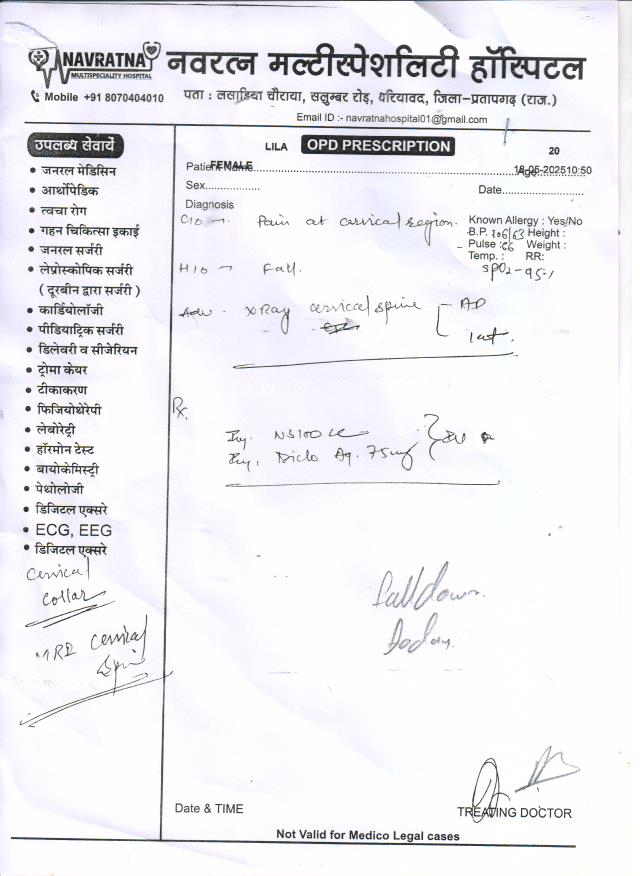 NAVRATNA
MULTISPECIALITY HOSPITAL
नवरत्न मल्टीस्पेशलिटी हॉस्पिटल
Mobile +91 8070404010
पता : लसाडिया चौराया, सलुम्बर रोड़, धरियावद, जिला-प्रतापगढ़ (राज.)
Email ID :- navratnahospital01@gmail.com
उपलब्ध सेवायें
जनरल मेडिसिन
आर्थोपेडिक
त्वचा रोग
गहन चिकित्सा इकाई
जनरल सर्जरी
लेप्रोस्कोपिक सर्जरी
( दूरबीन द्वारा सर्जरी )
कार्डियोलॉजी
पीडियाट्रिक सर्जरी
डिलेवरी व सीजेरियन
ट्रोमा केयर
टीकाकरण
फिजियोथेरेपी
लेबोरेट्री
हॉरमोन टेस्ट
बायोकेमिस्ट्री
पेथोलोजी
डिजिटल एक्सरे
ECG, EEG
डिजिटल एक्सरे
Cervical
Collar
MRI Cervical
Spine
LILA OPD PRESCRIPTION 20
Patient Name FEMALE Age 18-05-2025 10:50
Sex................. Date......................
Diagnosis
C/o → Pain at cervical region.
Known Allergy : Yes/No
B.P. 106/63 Height :
Pulse : 66 Weight :
Temp. : RR:
SpO2 - 95%
H/o → Fall.
Adv - X Ray cervical spine - AP
Lat.
Rx.
Inj. NS 100 cc
Inj. Diclo Aq. 75mg
Fall down
Today.
Date & TIME
TREATING DOCTOR
Not Valid for Medico Legal cases